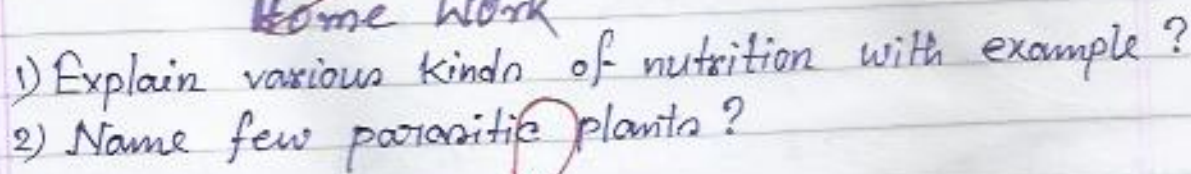 Home Work
1) Explain various kinds of nutrition with example ?
2) Name few parasitic plants ?